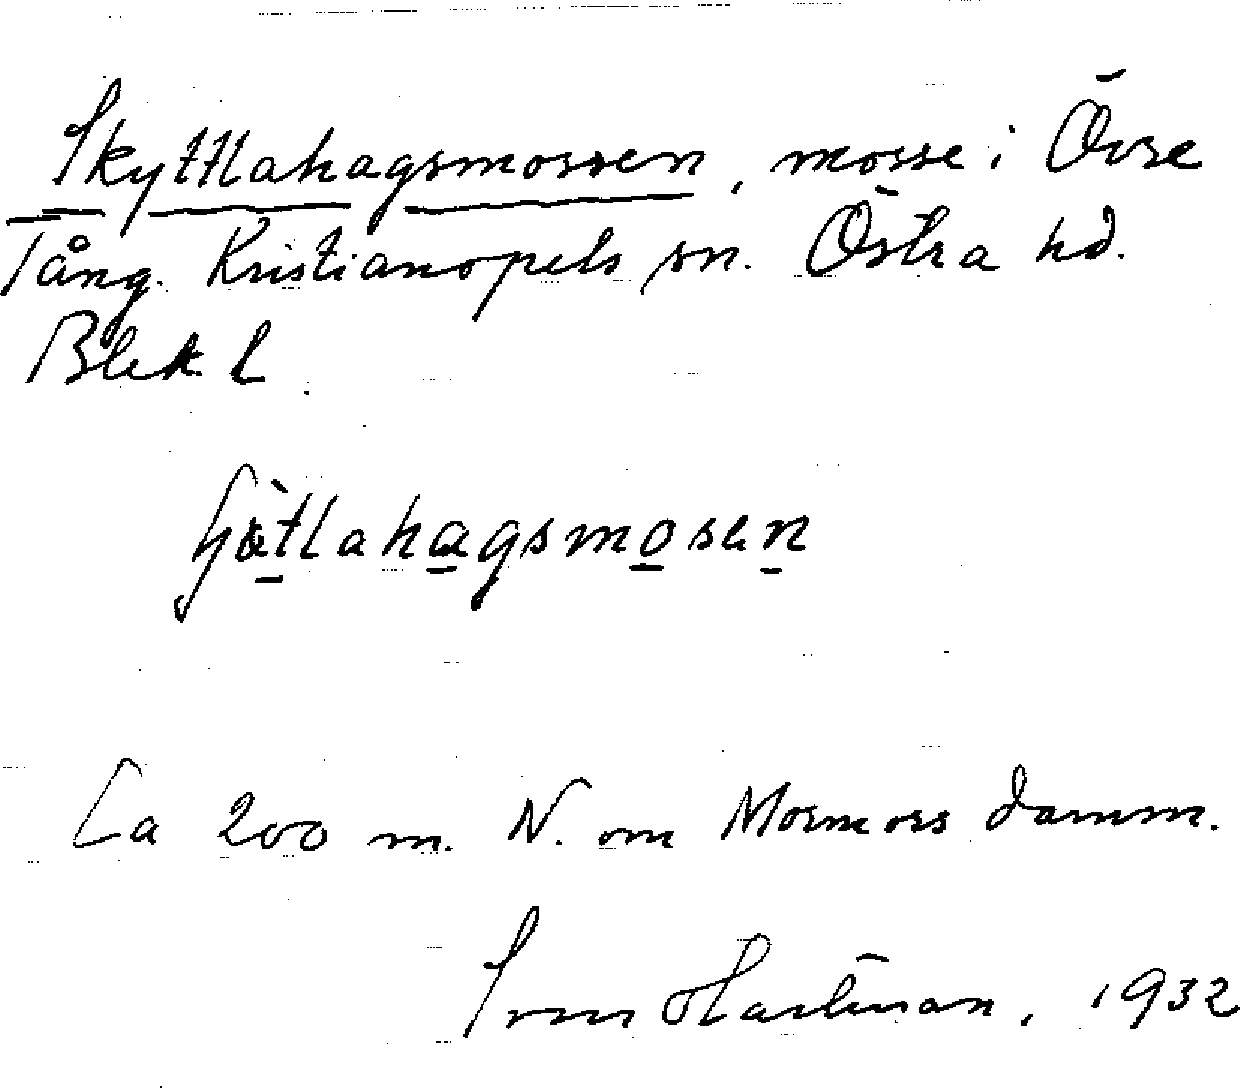 Skyttlahagsmossen, mosse i Övre
Tång. Kristianopels sn. Östra hd.
Blek l.
hagsmosen
Ca 200 m. N. om Mormors damm.
Sven Hartman, 1932